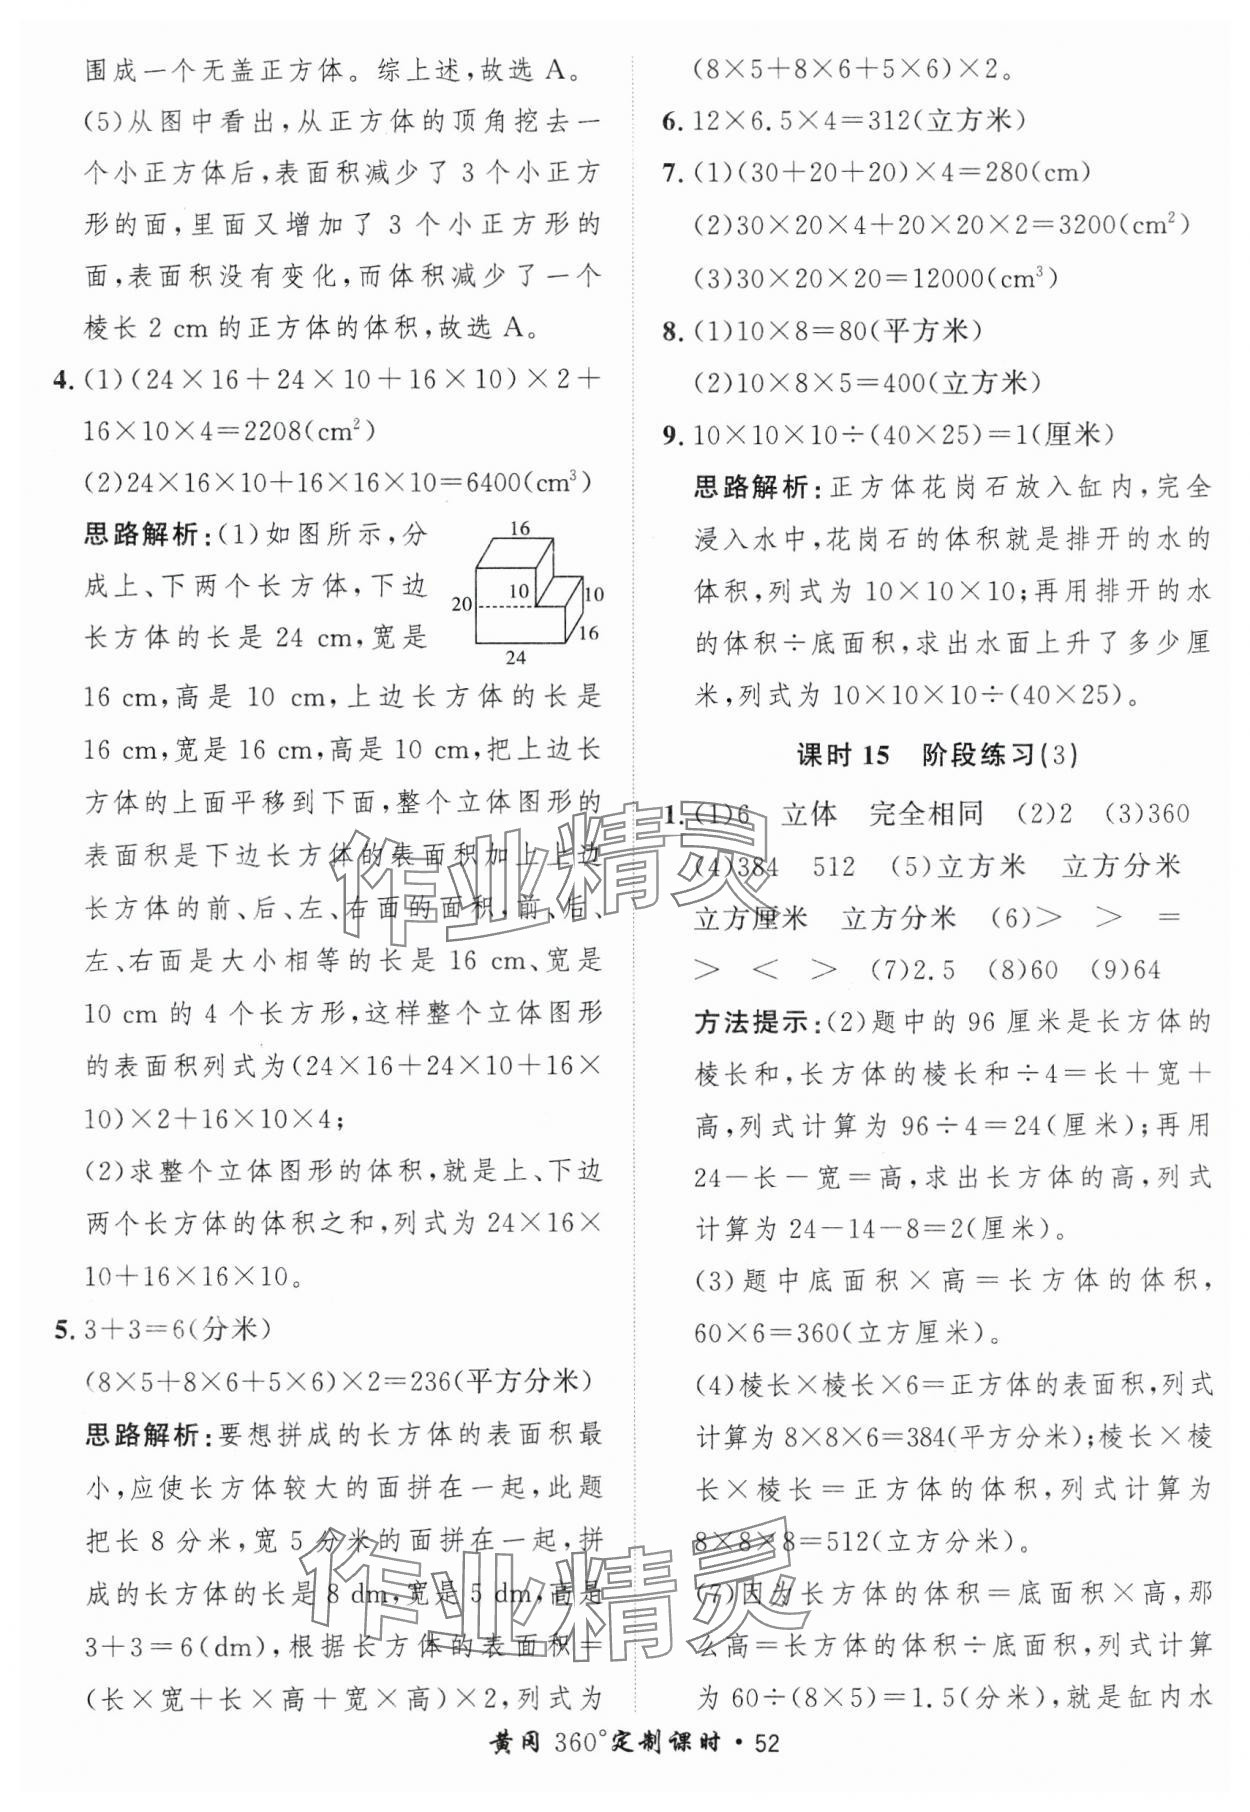 围成一个无盖正方体。综上述,故选 A。
(5)从图中看出,从正方体的顶角挖去一
个小正方体后,表面积减少了 3 个小正方
形的面,里面又增加了 3 个小正方形的
面,表面积没有变化,而体积减少了一个
棱长 2 cm的正方体的体积,故选 A。
4. (1)(24×16+24×10+16×10)×2+
16×10×4=2208(cm²)
(2)24×16×10+16×16×10=6400(cm³)
思路解析:(1)如图所示,分
成上、下两个长方体,下边
长方体的长是 24 cm,宽是
16
10
10
20
16
24
16 cm,高是 10 cm,上边长方体的长是
16 cm,宽是 16 cm,高是 10 cm,把上边长
方体的上面平移到下面,整个立体图形的
表面积是下边长方体的表面积加上上边
长方体的前、后、左、右面的面积,前、后、
左、右面是大小相等的长是 16 cm、宽是
10 cm 的 4 个长方形,这样整个立体图形
的表面积列式为(24×16+24×10+16×
10)×2+16×10×4;
(2)求整个立体图形的体积,就是上、下边
两个长方体的体积之和,列式为 24×16×
10+16×16×10。
5. 3+3=6(分米)
(8×5+8×6+5×6)×2=236(平方分米)
思路解析:要想拼成的长方体的表面积最
小,应使长方体较大的面拼在一起,此题
把长 8 分米,宽 5 分米的面拼在一起,拼
成的长方体的长是 8 dm,宽是 5 dm,高是
3+3=6(dm),根据长方体的表面积=
(长×宽+长×高+宽×高)×2,列式为
(8×5+8×6+5×6)×2。
6. 12×6.5×4=312(立方米)
7. (1)(30+20+20)×4=280(cm)
(2)30×20×4+20×20×2=3200(cm²)
(3)30×20×20=12000(cm³)
8. (1)10×8=80(平方米)
(2)10×8×5=400(立方米)
9. 10×10×10÷(40×25)=1(厘米)
思路解析:正方体花岗石放入缸内,完全
浸入水中,花岗石的体积就是排开的水的
体积,列式为 10×10×10;再用排开的水
的体积÷底面积,求出水面上升了多少厘
米,列式为 10×10×10÷(40×25)。
课时 15 阶段练习(3)
1. (1)6 立体 完全相同 (2)2 (3)360
(4)384 512 (5)立方米 立方分米
立方厘米 立方分米 (6)> > =
> < > (7)2.5 (8)60 (9)64
方法提示:(2)题中的 96 厘米是长方体的
棱长和,长方体的棱长和÷4=长+宽+
高,列式计算为 96÷4=24(厘米);再用
24-长-宽=高,求出长方体的高,列式
计算为 24-14-8=2(厘米)。
(3)题中底面积×高=长方体的体积,
60×6=360(立方厘米)。
(4)棱长×棱长×6=正方体的表面积,列式
计算为 8×8×6=384(平方分米);棱长×棱
长×棱长=正方体的体积,列式计算为
8×8×8=512(立方分米)。
(7)因为长方体的体积=底面积×高,那
么高=长方体的体积÷底面积,列式计算
为 60÷(8×5)=1.5(分米),就是缸内水
作业精灵
作业精灵
黄冈 360°定制课时·52